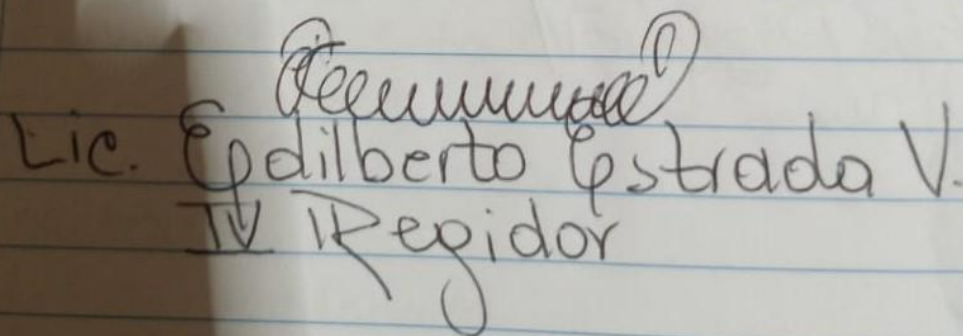 Lic. Edilberto Estrada V.
IV Regidor